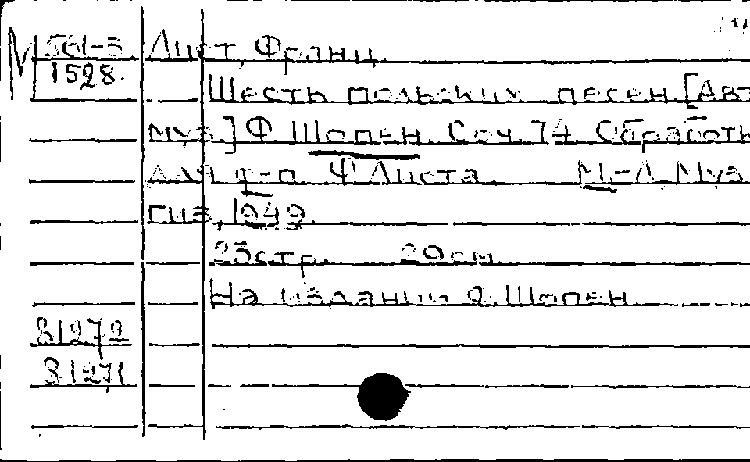 М 561-3 Лист, Франц.
1528.
Шесть польских песен. [Авт.
муз.] Ф. Шопен. Соч. 74. Обработк
для ф-п. Ф. Листа. М.-Л. Муз
гиз, 1949.
23 стр. 29 см.
На издании: Ф. Шопен.
81272
81271